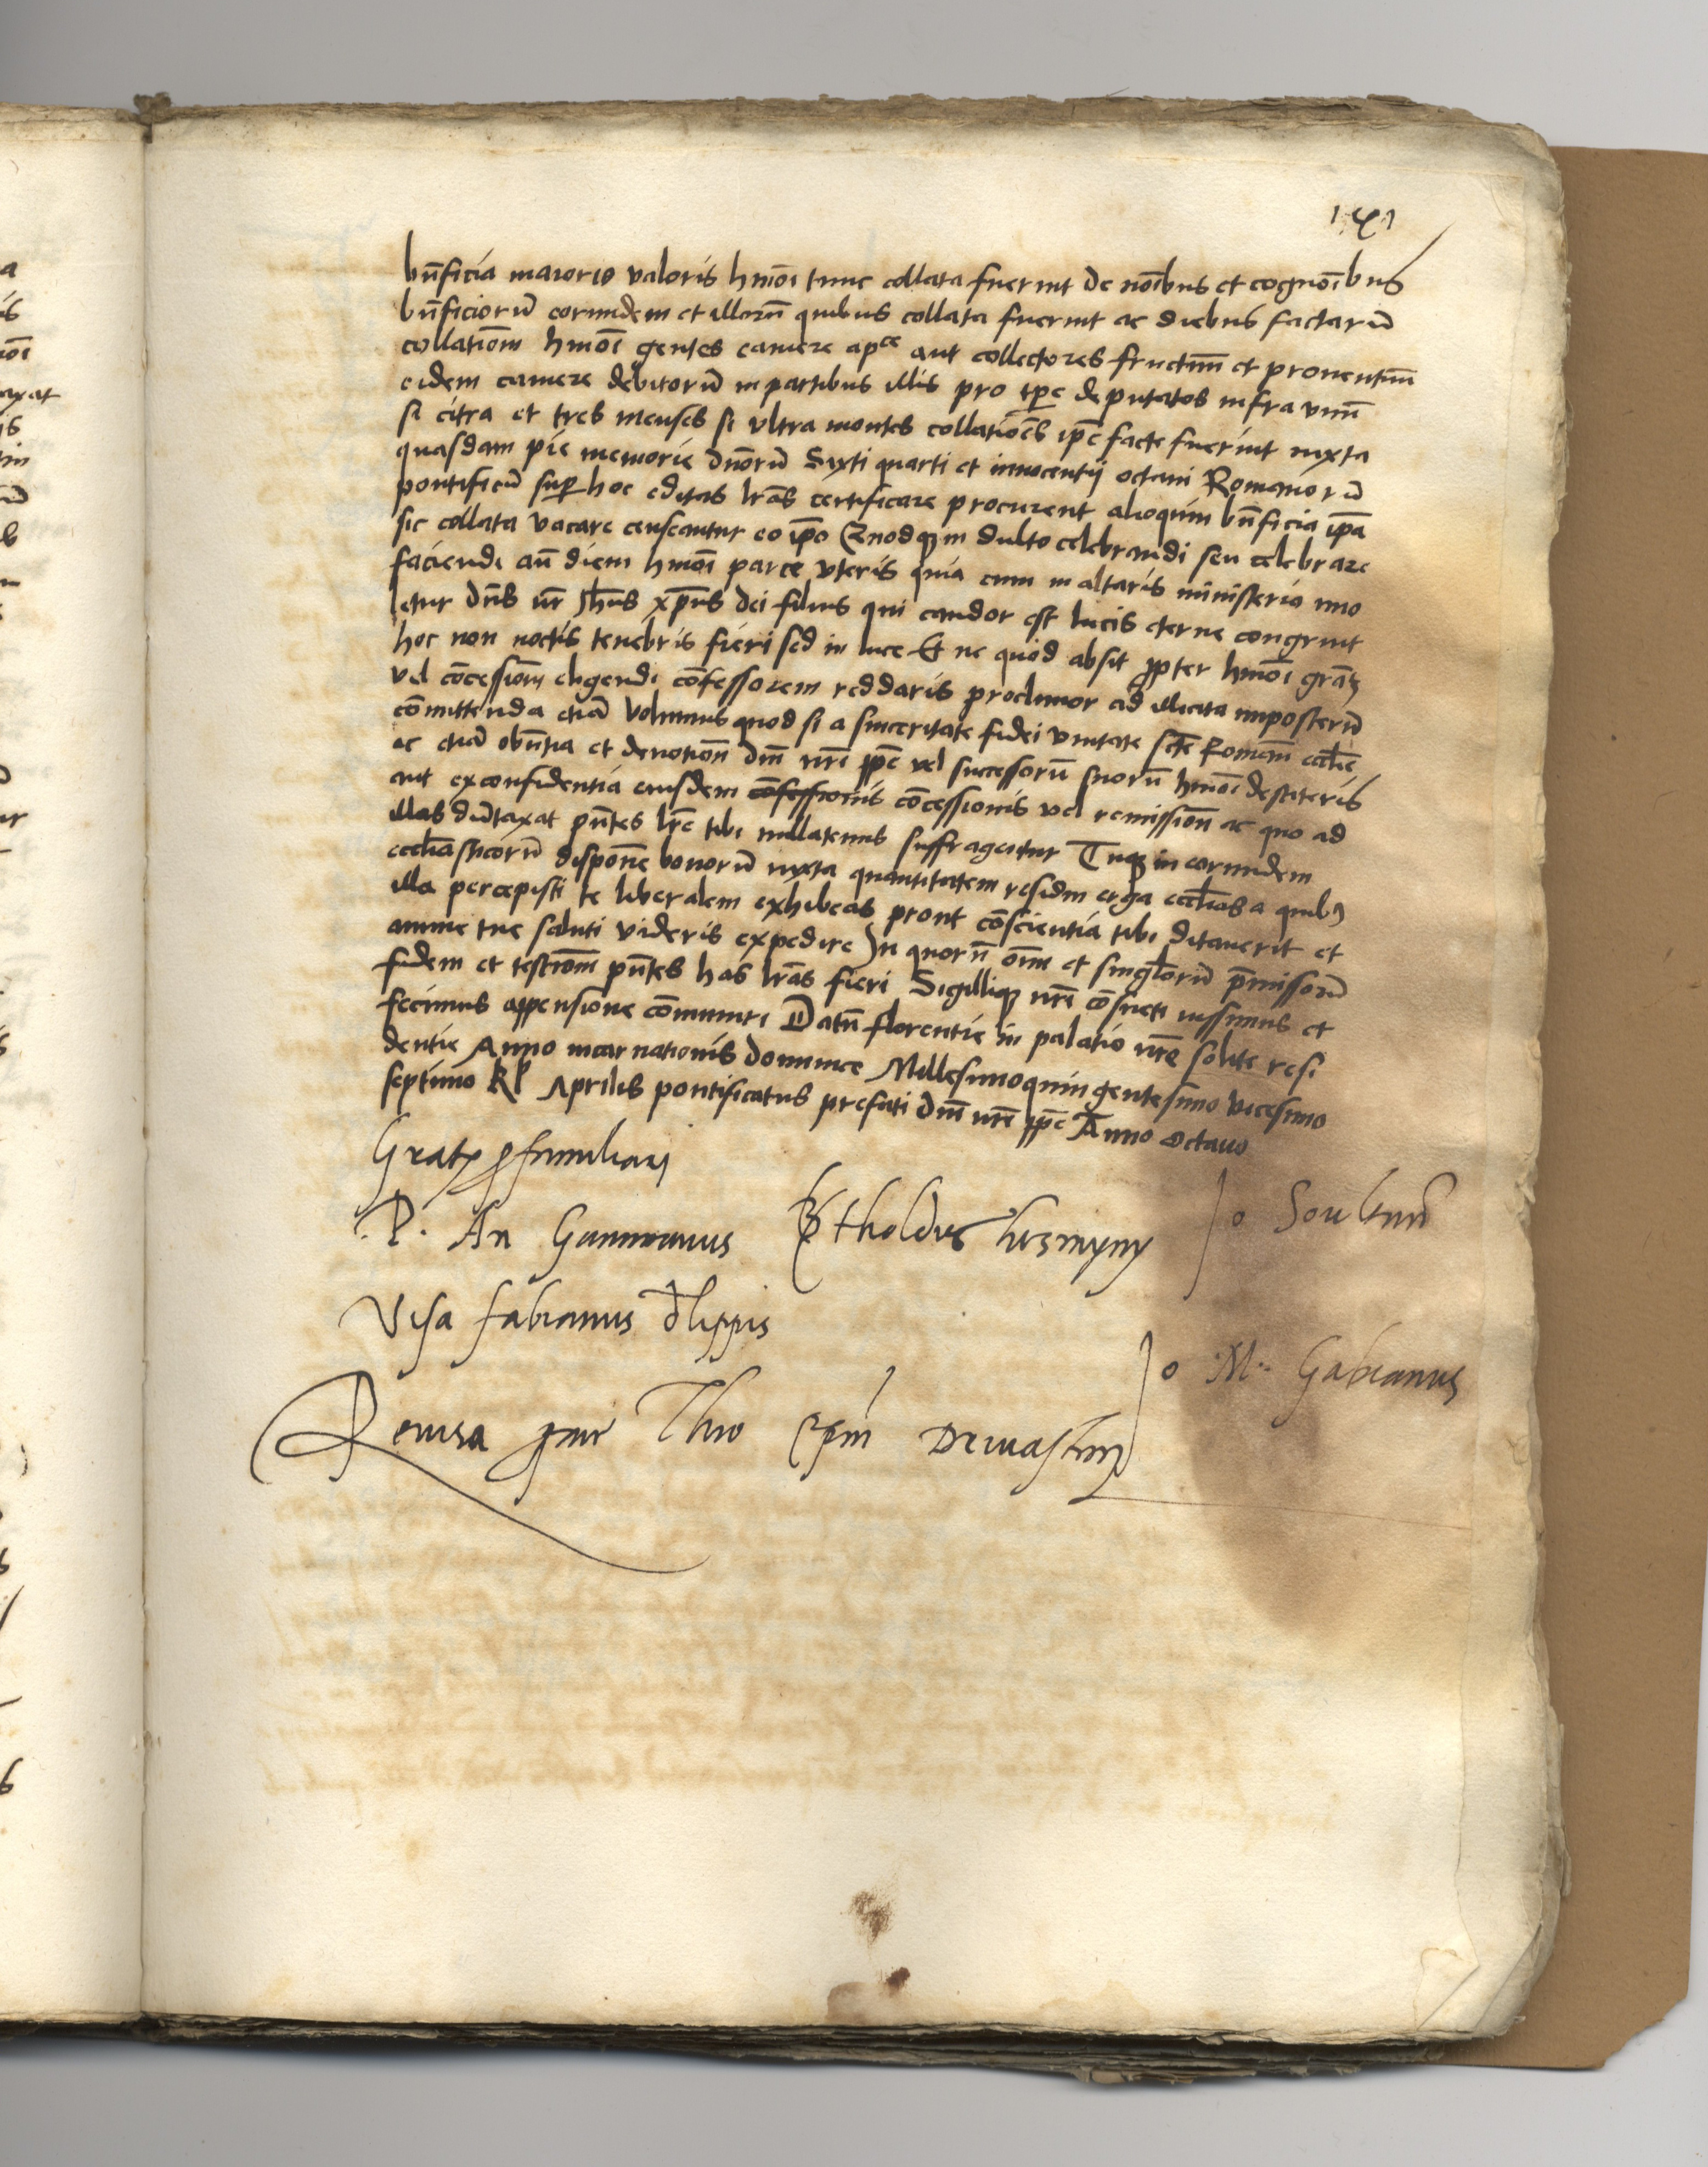 bn̄ficia maioris valoris hmōi tunc collata fuerint de noībus et cognoībus
bn̄ficiorū eorundem et illorū quibus collata fuerint ac diebus factarū
collationm̄ hmōi gentes camere apce aut collectores fructuum et prouentuum
eidem camere debitorū in partibus illis pro tpe deputatos infra vnū
si citra et tres menses si vltra montes collatiōes ipē facte fuerint iuxta
quasdam pie memorie dnorū Sixti quarti et innocentij octaui Romanorū
pontificū super hoc editas lrās certificare procurent alioquin bn̄ficia ipā
sic collata vacare censeantur eo ipō Quodq indulto celebrandi seu celebrare
faciendi an̄ diem hmōi parce vteris quia cum in altaris ministerio imo
letur dn̄s nr̄ Jhūs xp̄us dei filius qui candor est lucis eterne congruit
hoc non noctis tenebris fieri sed in luce Et ne quod absit ꝓpter hmōi grāꝫ
vel cōcessionm̄ eligendi cōfessorem reddaris procliuior ad illicita imposterū
cōmittenda etiā volumus quod si a sinceritate fidei vnitate scte Romane eccl̄ie
ac etiā obn̄tia et deuotion̄ dn̄i nrī pp̄e vel successorū suorū hmōi destiteris
aut ex confidentia eiusdem cōfessionis cōcessionis vel remission̄ ac quo ad
illas dūtaxat pn̄tes lrē tibi nullatenus suffragentur Tuq in eorundem
eccl̄iasticorū dispone bonorū iuxta quantitatem residui erga eccl̄ias a quibꝫ
illa percepisti te liberalem exhibeas prout cōscientia tibi ditauerit et
anime tue saluti videris expedire In quorū oīm et singl̄orū p̄missorū
fidem et testiom̄ pn̄tes has lrās fieri Sigilliq nrī cōsueti iussimus et
fecimus appensione cōmuniri Datū florentie in palatio nrē solite resi
dentie Anno incarnationis dominice Millesimoquingentesimo vicesimo
septimo Kl Aprilis pontificatus prefati dn̄i nrī pp̄e Anno octauo
Gratꝫ ꝑ familiari
P. An
Visa fabianus d̄ lippis
Jo M. Gabianus
Reuisa